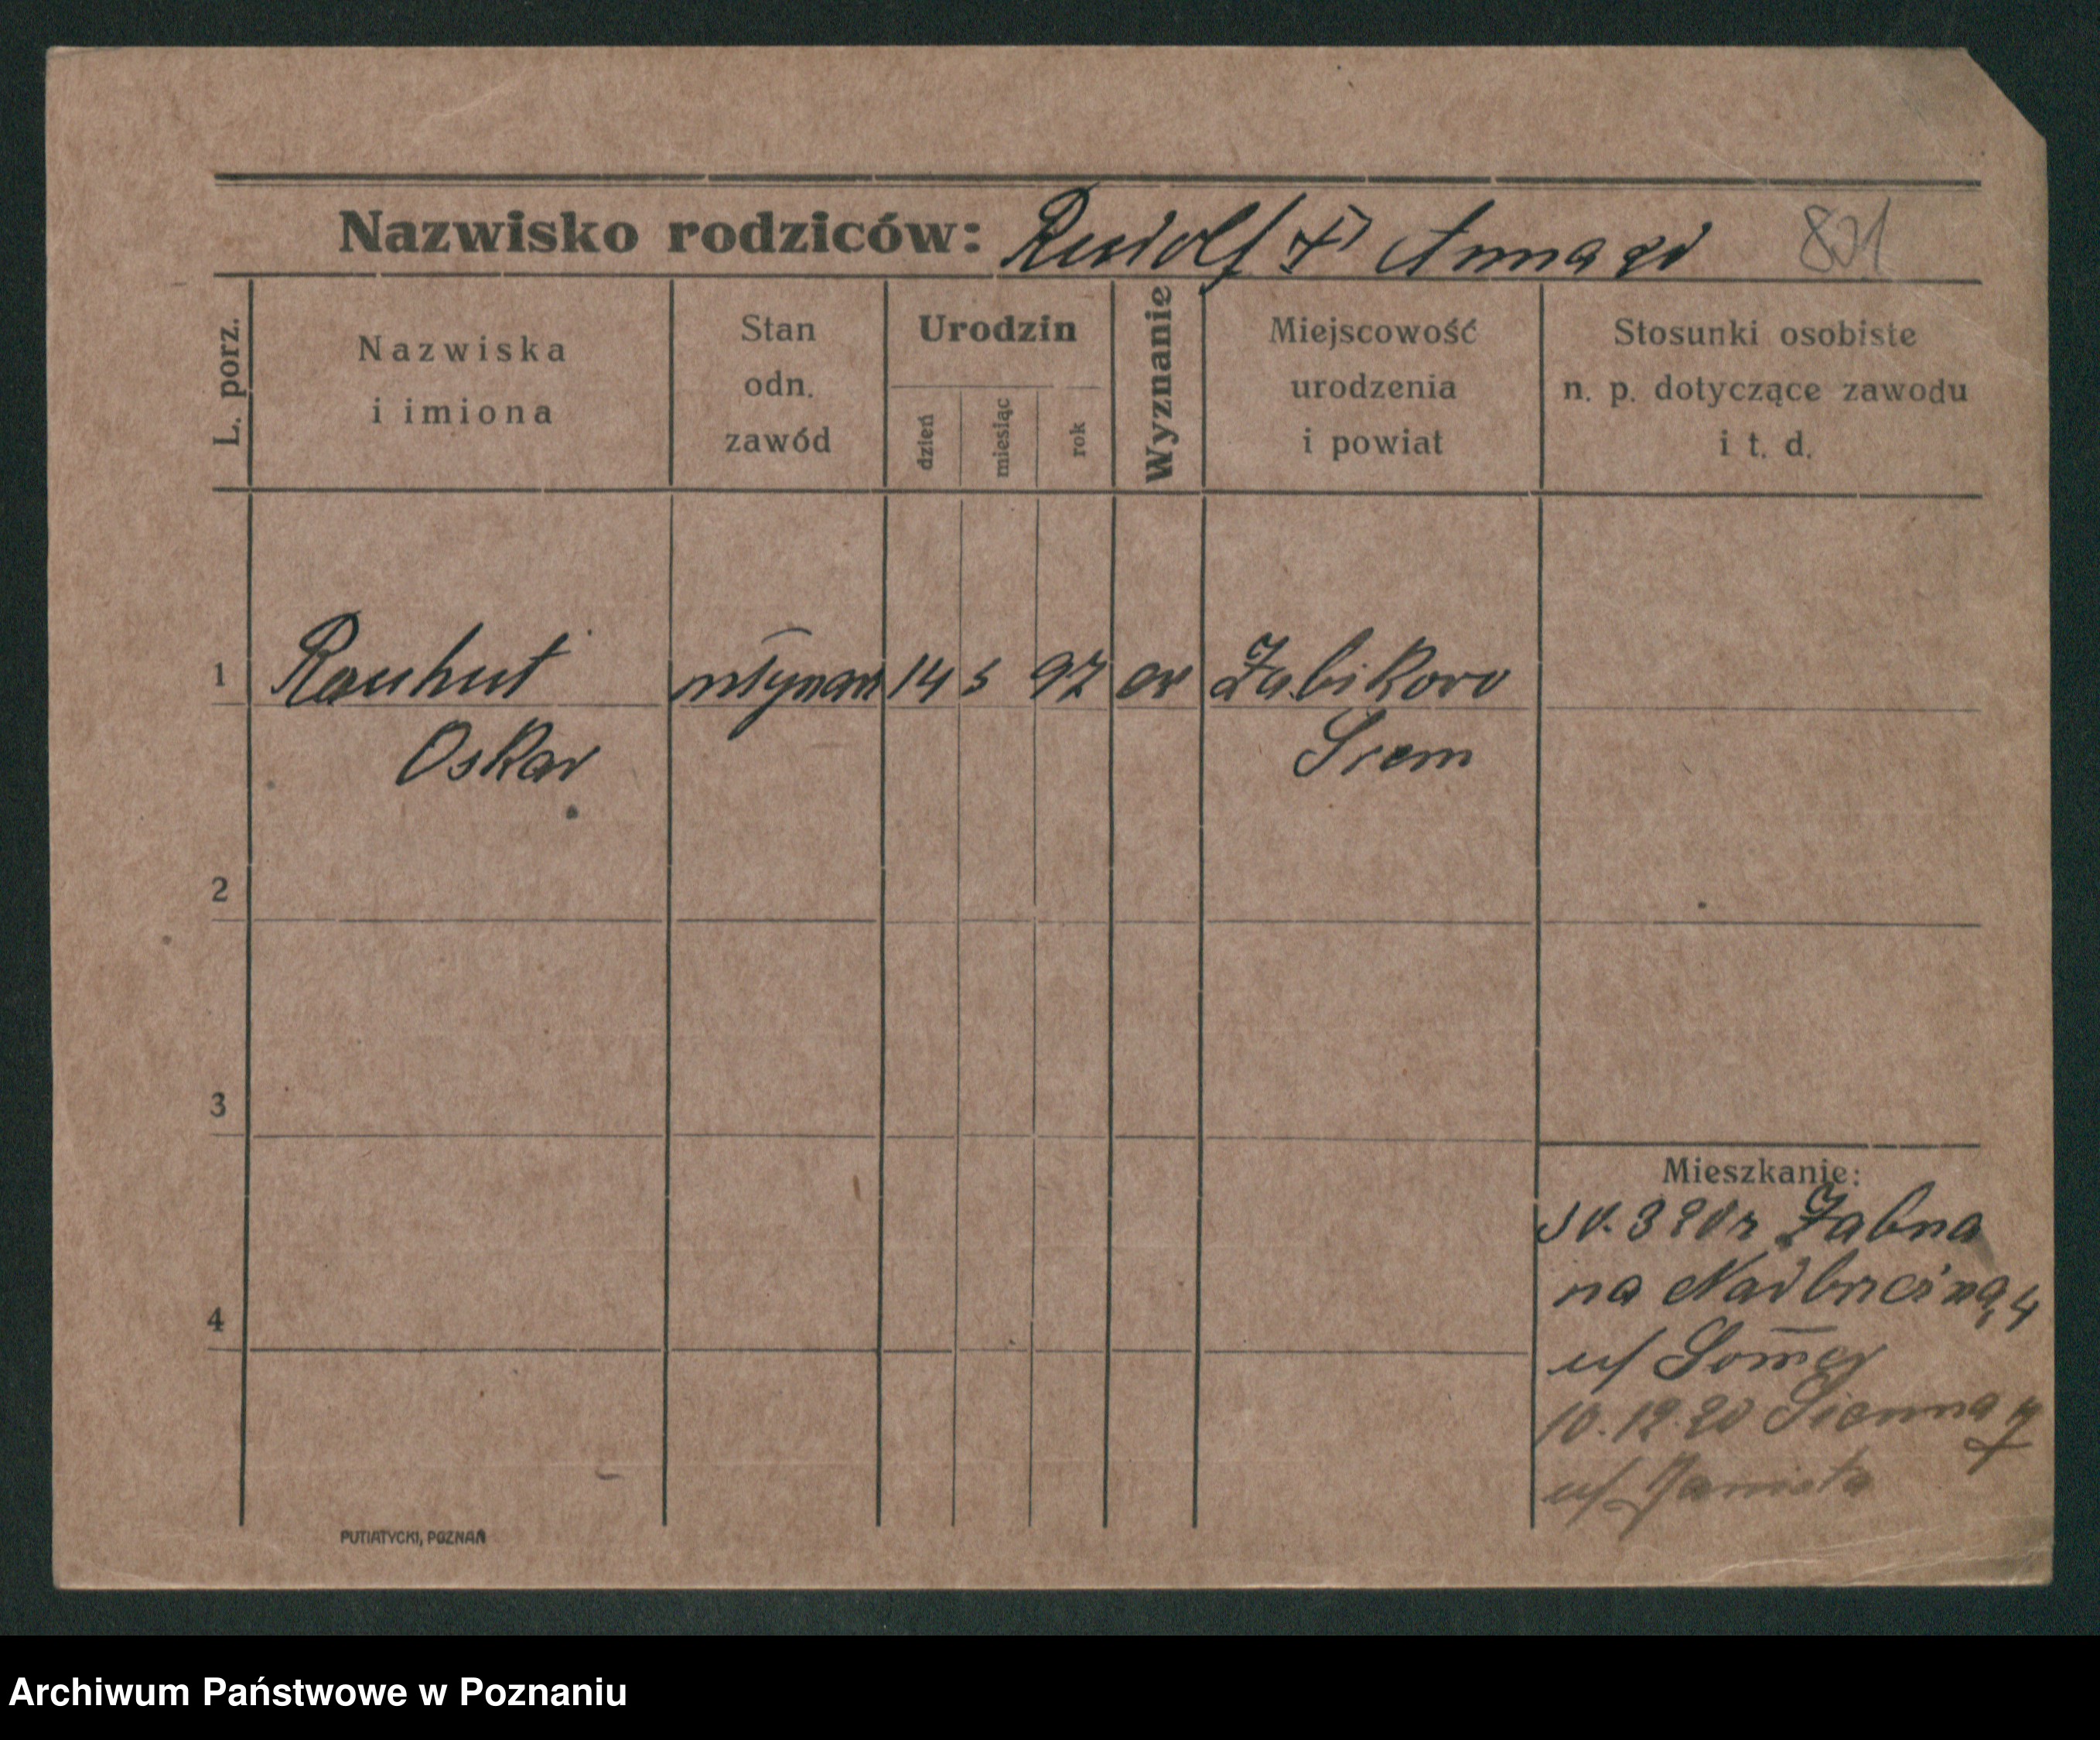 Nazwisko rodziców: Rudolf Anna 821
L. porz.
Nazwiska i imiona
Stan odn. zawód
Urodzin
dzień miesiąc rok
Wyznanie
Miejscowość urodzenia i powiat
Stosunki osobiste n. p. dotyczące zawodu i t. d.
1 Rauhut młynarz 14 5 97 ew Żabikowo
Oskar Srem
2
3
4
Mieszkanie:
Żabna
na Nadbrzeżną 4
u/ Somer
10.12.20 Sienna
u/
PUTIATYCKI, POZNAŃ
Archiwum Państwowe w Poznaniu